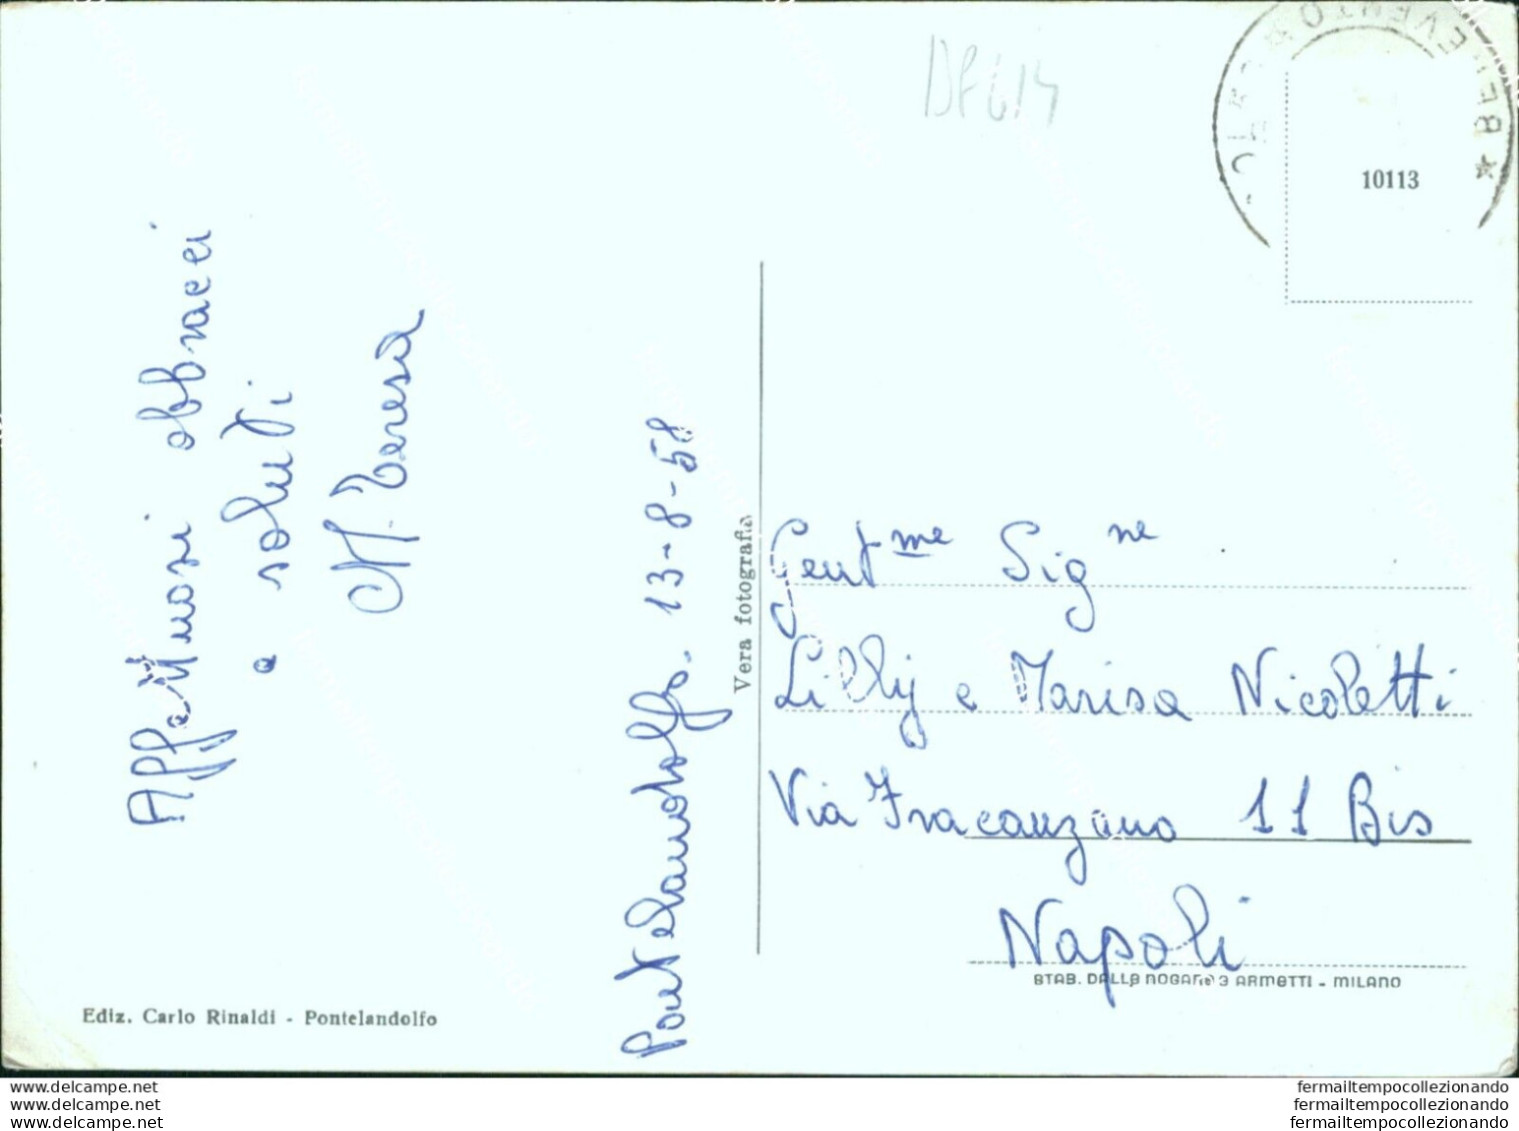 DF614
BENEVENTO
10113
Affettuosi abbracci
e saluti
M. Teresa
Pontelandolfo. 13-8-58
Vera fotografia
Gent.me Sig.ne
Lilly e Marisa Nicoletti
Via Fracanzano 11 Bis
Napoli
STAB. DALLE NOGARE E ARMETTI - MILANO
Ediz. Carlo Rinaldi - Pontelandolfo
www.delcampe.net
www.delcampe.net
www.delcampe.net
fermailtempocollezionando
fermailtempocollezionando
fermailtempocollezionando